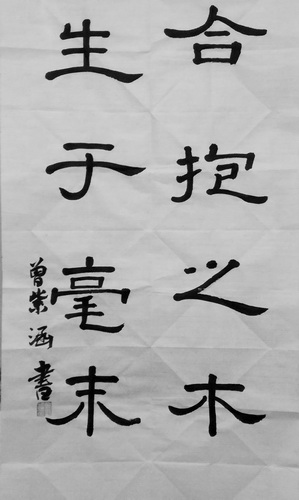 合抱之木
生于毫末
曾紫涵書